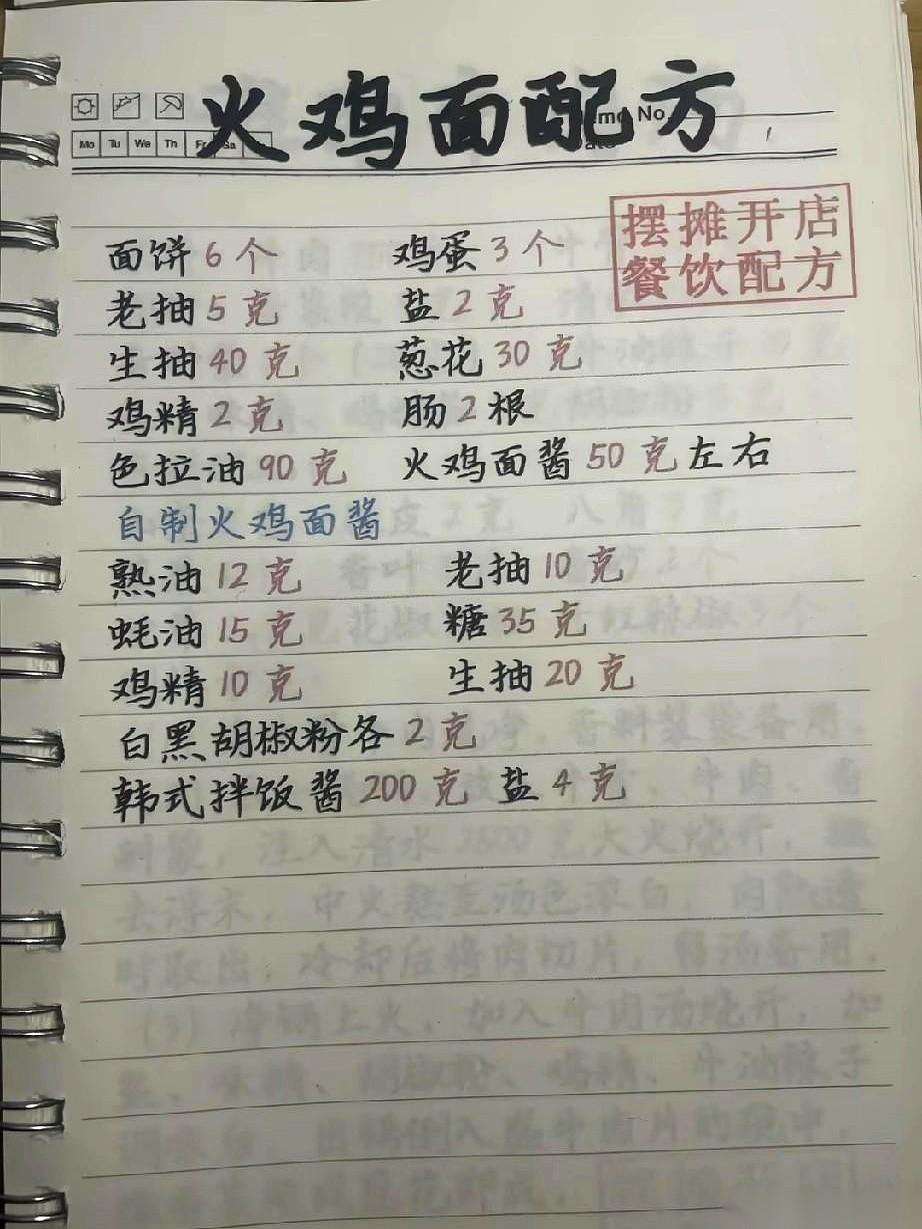 火鸡面配方
Memo No
Mo Tu We Th Fr Sa
Date
摆摊开店
餐饮配方
面饼6个 鸡蛋3个
老抽5克 盐2克
生抽40克 葱花30克
鸡精2克 肠2根
色拉油90克 火鸡面酱50克左右
自制火鸡面酱
熟油12克 老抽10克
蚝油15克 糖35克
鸡精10克 生抽20克
白黑胡椒粉各2克
韩式拌饭酱200克 盐4克